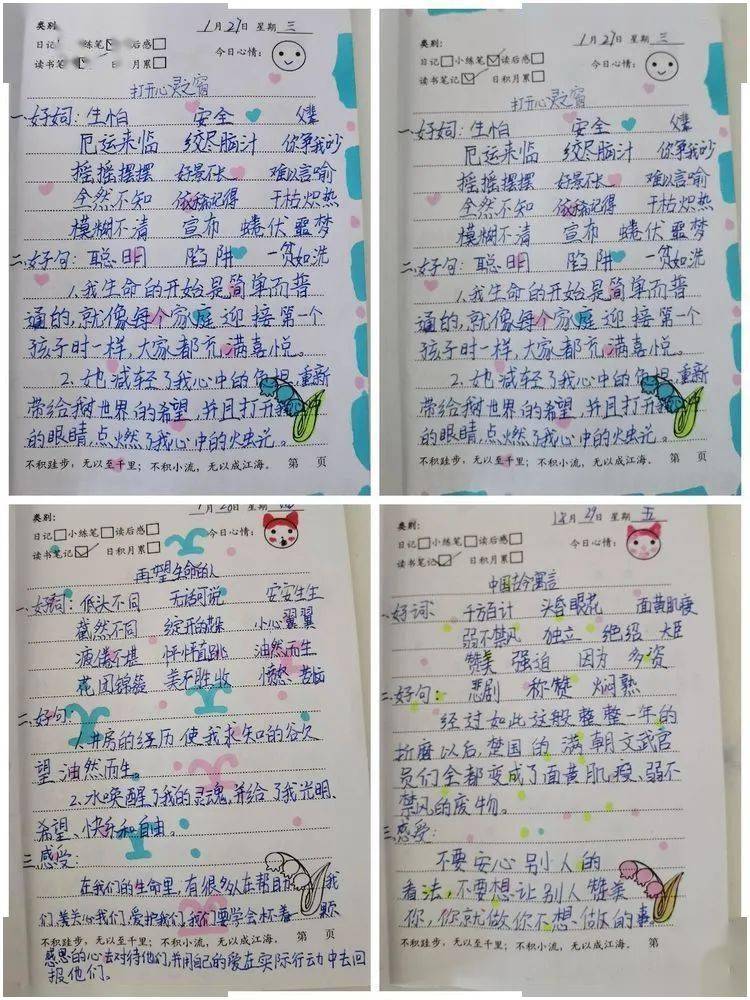 类别:
1月27日 星期 三
练笔 后感
今日心情:
读书笔 日积月累
打开心灵之窗
一、好词: 生怕 安全
厄运来临 绞尽脑汁 你争我吵
摇摇摆摆 好景不长 难以言喻
全然不知 依稀记得 干枯炽热
模糊不清 宣布 蜷伏 噩梦
二、好句: 聪明 陷阱 一贫如洗
1、我生命的开始是简单而普
通的,就像每个家庭迎接第一个
孩子时一样,大家都充满喜悦。
2、她减轻了我心中的负担,重新
带给我对世界的希望,并且打开我
的眼睛,点燃了我心中的火
不积跬步,无以至千里;不积小流,无以成江海。 第 页
类别:
1月27日 星期 三
日记 小练笔 读后感
今日心情:
读书笔记 日积月累
打开心灵之窗
一、好词: 生怕 安全
厄运来临 绞尽脑汁 你争我吵
摇摇摆摆 好景不长 难以言喻
全然不知 依稀记得 干枯炽热
模糊不清 宣布 蜷伏 噩梦
二、好句: 聪明 陷阱 一贫如洗
1、我生命的开始是简单而普
通的,就像每个家庭迎接第一个
孩子时一样,大家都充满喜悦。
2、她减轻了我心中的负担,重新
带给我对世界的希望,并且打开
的眼睛,点燃了我心中的火
不积跬步,无以至千里;不积小流,无以成江海。 第 页
类别:
1月28日 星期
日记 小练笔 读后感
今日心情:
读书笔记 日积月累
再塑生命的人
一、好词: 低头不同 无话可说 安安生生
截然不同 绽开的花朵 小心翼翼
疲倦不堪 怦怦直跳 油然而生
花团锦簇 美不胜收 愤怒 苦恼
二、好句:
1、井房的经历使我求知的欲
望油然而生。
2、水唤醒了我的灵魂,并给了我光明、
希望、快乐和自由。
三、感受:
在我们的生命里,有很多人在帮 我
们,关心我们,爱护我们,我们要学会怀着
感恩的心去对待他们,并用自己的爱在实际行动中去回
报他们。
不积跬步,无以至千里;不积小流,无以成江海。 第 页
类别:
月29日 星期 五
日记 小练笔 读后感
今日心情:
读书笔记 日积月累
中国古今寓言
一、好词: 千方百计 头昏眼花 面黄肌瘦
弱不禁风 独立 绝招 大臣
赞美 强迫 因为 多姿
二、好句: 悲剧 称赞 焖熟
经过如此这般整整一年的
折磨以后,楚国的满朝文武官
员们全都变成了面黄肌瘦、弱不
禁风的废物。
三、感受:
不要安心别人的
看法,不要想让别人赞美
你,你就做你不想做的事
不积跬步,无以至千里;不积小流,无以成江海。 第